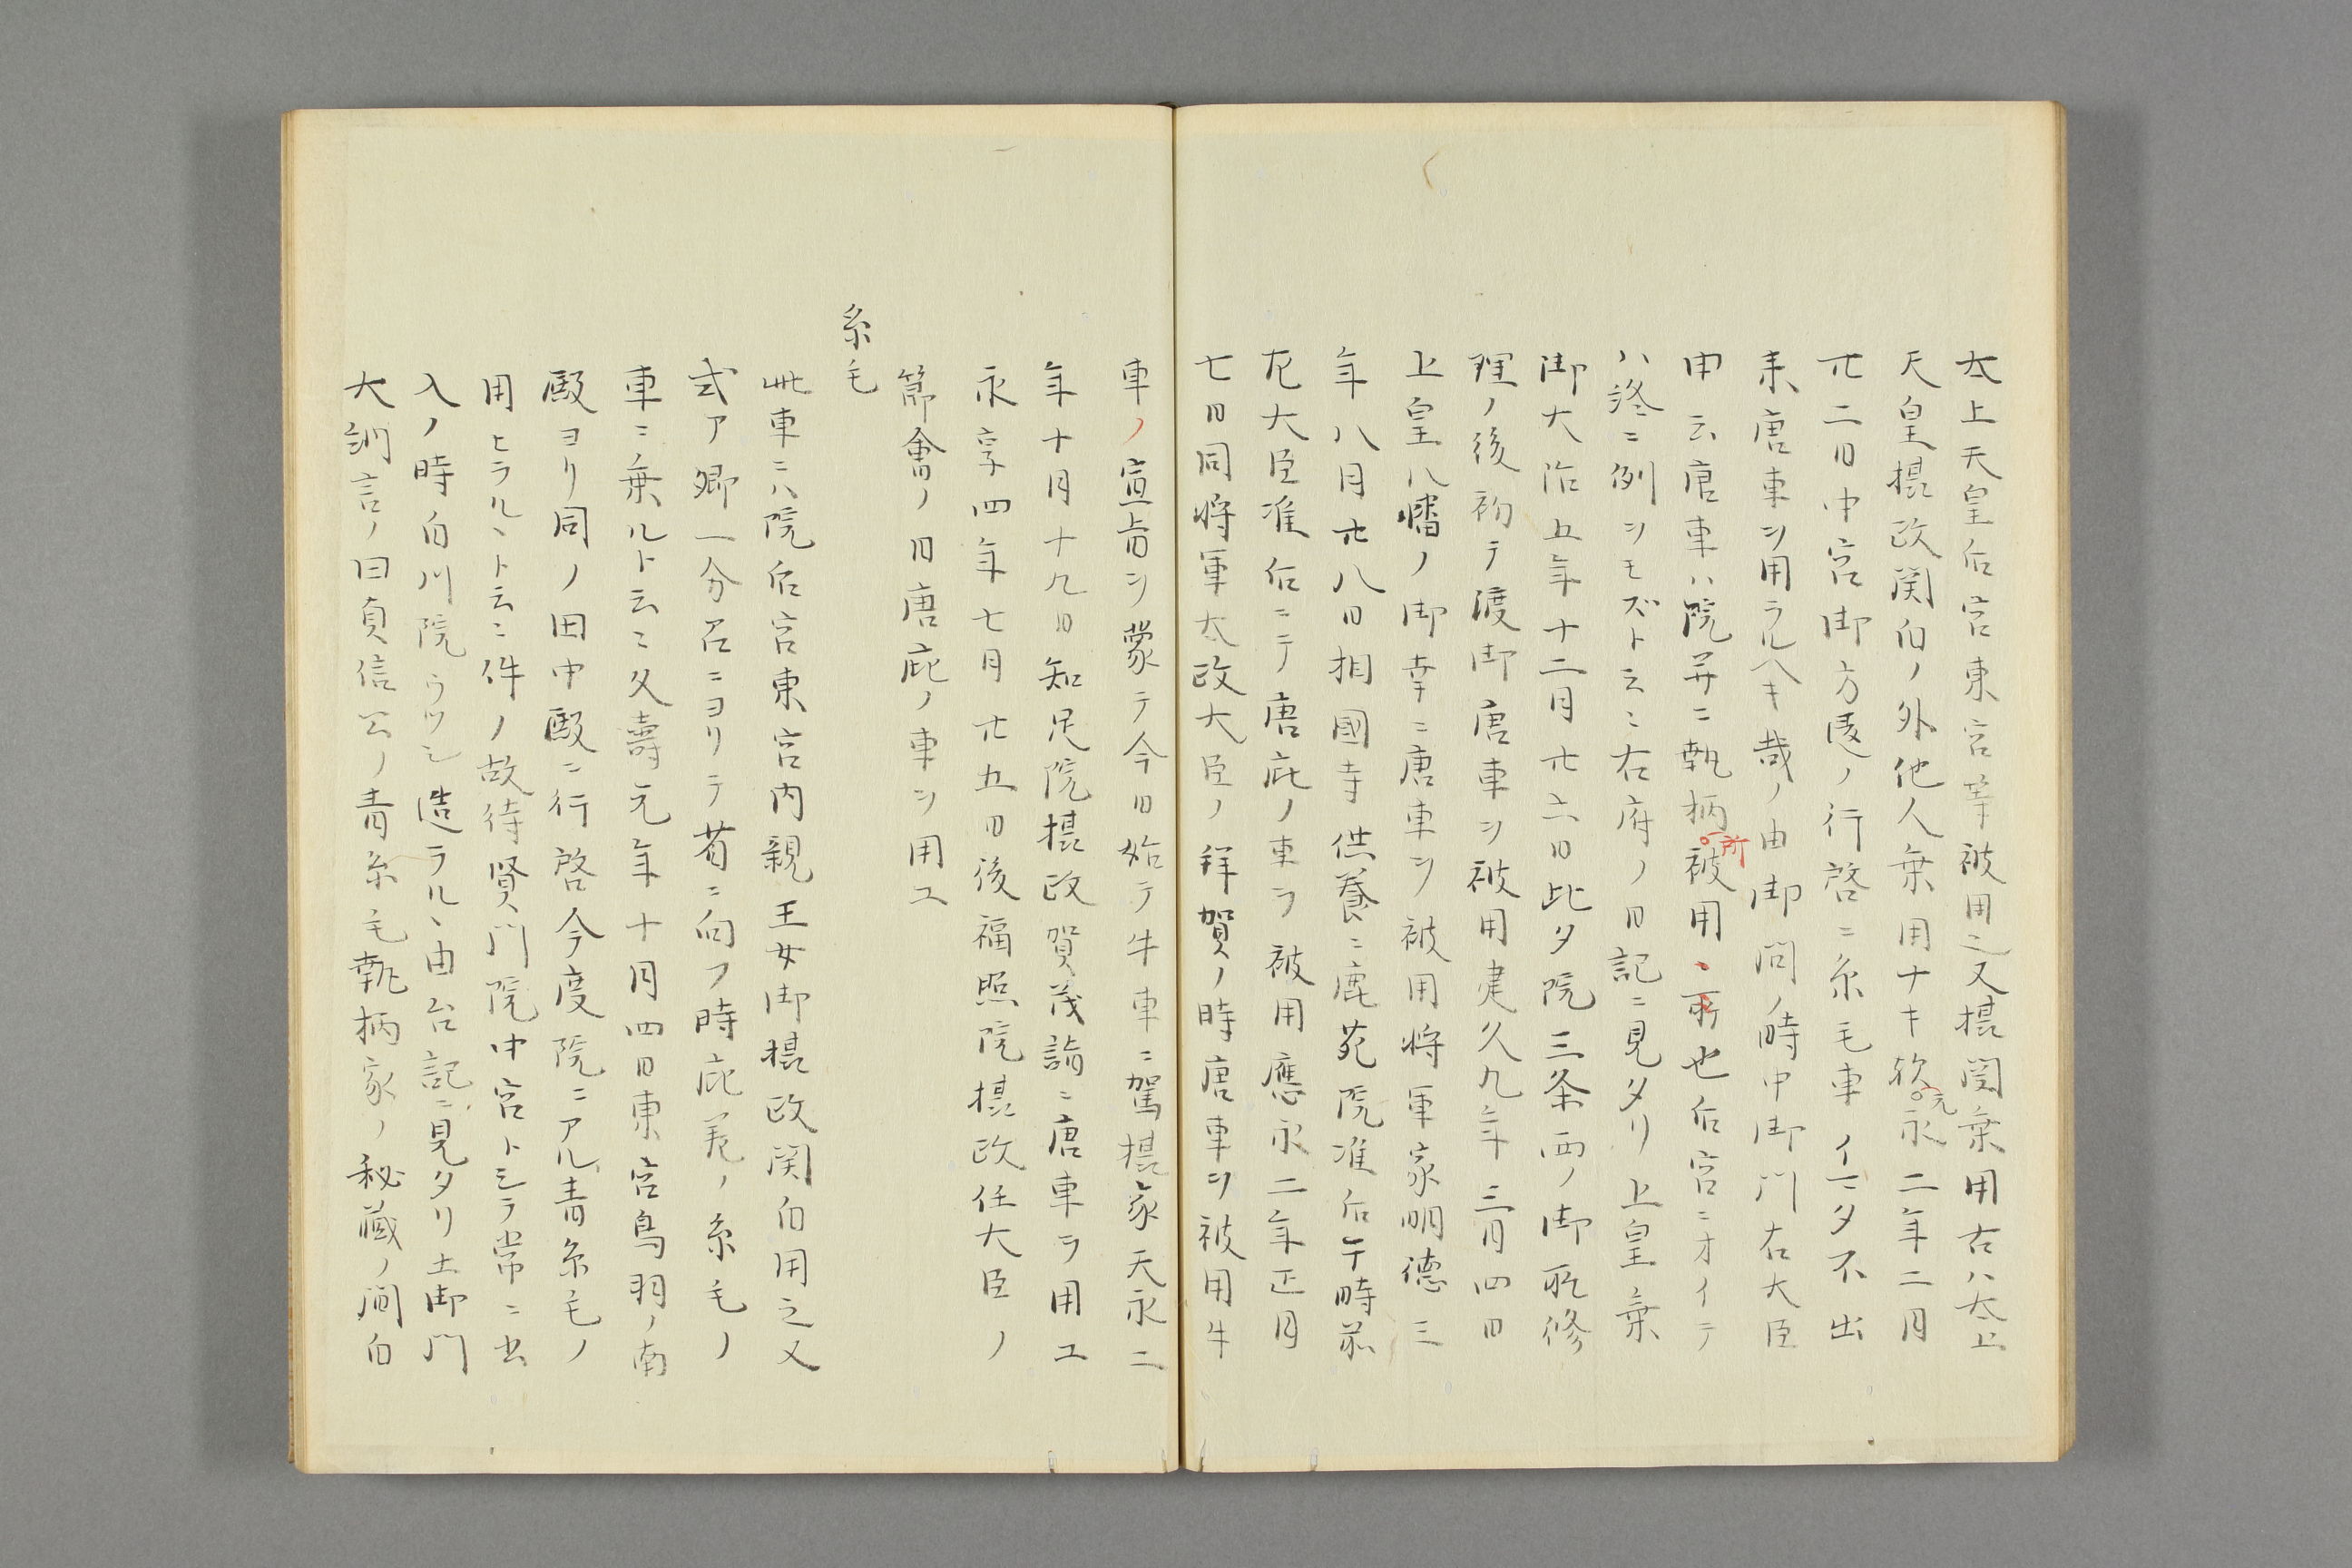 太上天皇后宮東宮等被用之又摂関乗用右ハ太上
天皇摂政関白ノ外他人乗用ナキ歟元永二年二月
廿二日中宮御方違ノ行啓ニ糸毛車イニタ不出
来唐車ヲ用ラルヘキ哉ノ由御問ノ時中御門右大臣
申云唐車ハ院并ニ執柄所被用、也后宮ニオイテ
ハ終ニ例ヲモズト云ニ右府ノ日記ニ見タリ上皇ノ乗
御大治五年十二月廿六日此夕院三条西ノ御所修
理ノ後初テ渡御唐車ヲ被用建久九年三月四日
上皇八幡ノ御幸ニ唐車ヲ被用将軍家明徳三
年八月廿八日相國寺供養ニ鹿苑院准后于時前
左大臣准后ニテ唐庇ノ車ヲ被用應永二年正月
七日同将軍太政大臣ノ拝賀ノ時唐車ヲ被用牛
車ノ宣旨ヲ蒙テ今日始テ牛車ニ駕摂家天永二
年十月十九日知足院摂政賀茂詣ニ唐車ヲ用ユ
永享四年七月廿五日後福照院摂政任大臣ノ
節會ノ日唐庇ノ車ヲ用ユ
糸毛
此車ニハ院后宮東宮内親王女御摂政関白用之又
式ア卿一分召ニヨリテ省ニ向フ時庇差ノ糸毛ノ
車ニ乗ルト云ニ久壽元年十月四日東宮鳥羽ノ南
殿ヨリ同ノ田中殿ニ行啓今度院ニアル青糸毛ノ
用ヒラル丶ト云ニ件ノ故待賢門院中宮トシテ常ニ出
入ノ時白川院ウツシ造ラル丶由台記ニ見タリ土御門
大納言ノ曰貞信公ノ青糸毛執柄家ノ秘蔵ノ間白